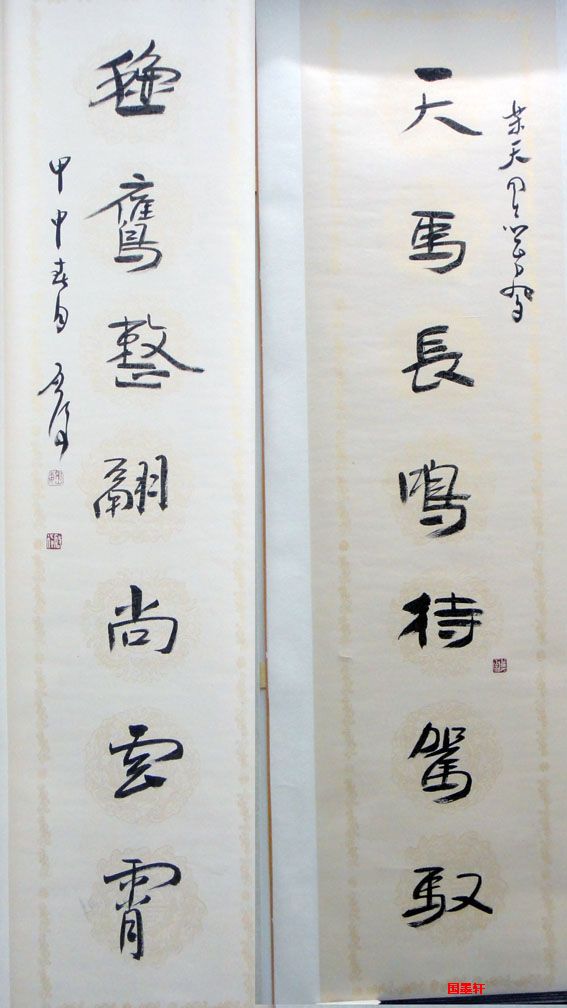 天馬長鳴待駕馭
穐鷹整翮尚雲霄
甲申春月
国墨轩